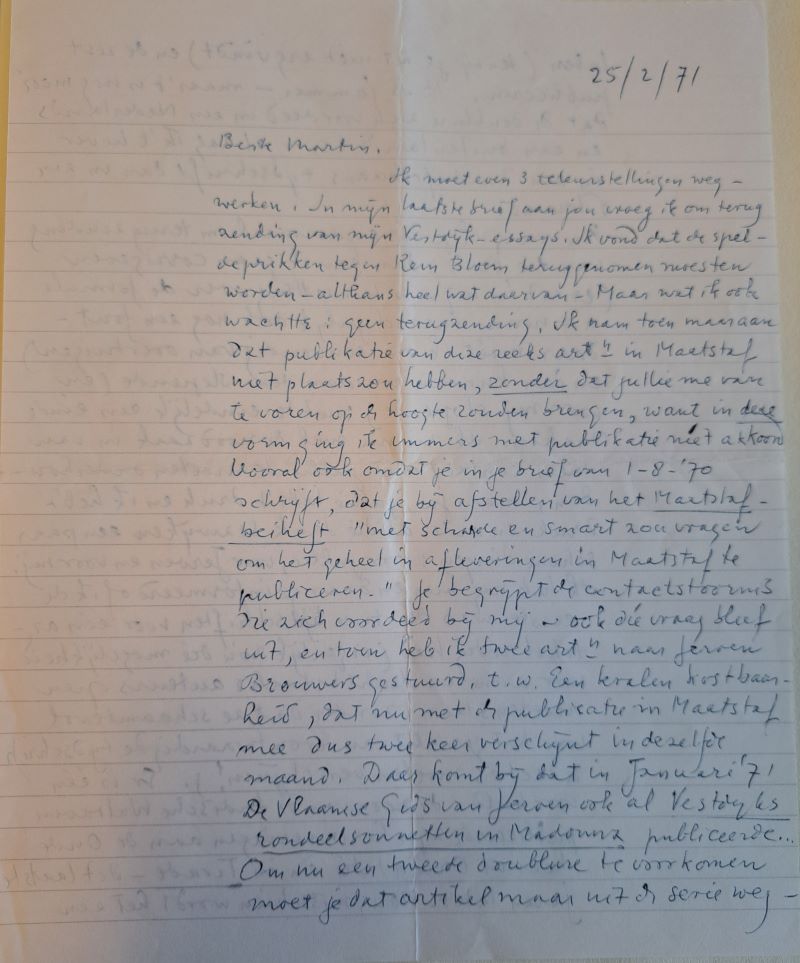 25/2/71
Beste Martin.
Ik moet even 3 teleurstellingen weg-
werken. In mijn laatste brief aan jou vroeg ik om terug
zending van mijn Vestdijk-essays. Ik vond dat de spel-
deprikken tegen Rein Bloem teruggenomen moesten
worden – althans heel wat daarvan –. Maar wat ik ook
wachtte: geen terugzending. Ik nam toen maar aan
dat publikatie van deze reeks artn in Maatstaf
niet plaats zou hebben, zonder dat jullie me van
te voren op de hoogte zouden brengen, want in deze
vorm ging ik immers met publikatie niét akkoord
Vooral ook omdat je in je brief van 1-8-'70
schrijft, dat je bij afstellen van het Maatstaf-
beiheft "met schade en smart zou vragen
om het geheel in afleveringen in Maatstaf te
publiceren." Je begrijpt de contactstoornis
die zich voordeed bij mij – ook díe vraag bleef
uit, en toen heb ik twee artn naar Jeroen
Brouwers gestuurd, t.w. Een kralen kostbaar-
heid, dat nu met de publicatie in Maatstaf
mee dus twee keer verschijnt in dezelfde
maand. Daar komt bij dat in Januari '71
De Vlaamse Gids van Jeroen ook al Vestdijks
rondeelsonnetten in Madonna publiceerde...
Om nu een tweede doublure te voorkomen
moet je dat artikel maar uit de serie weg-